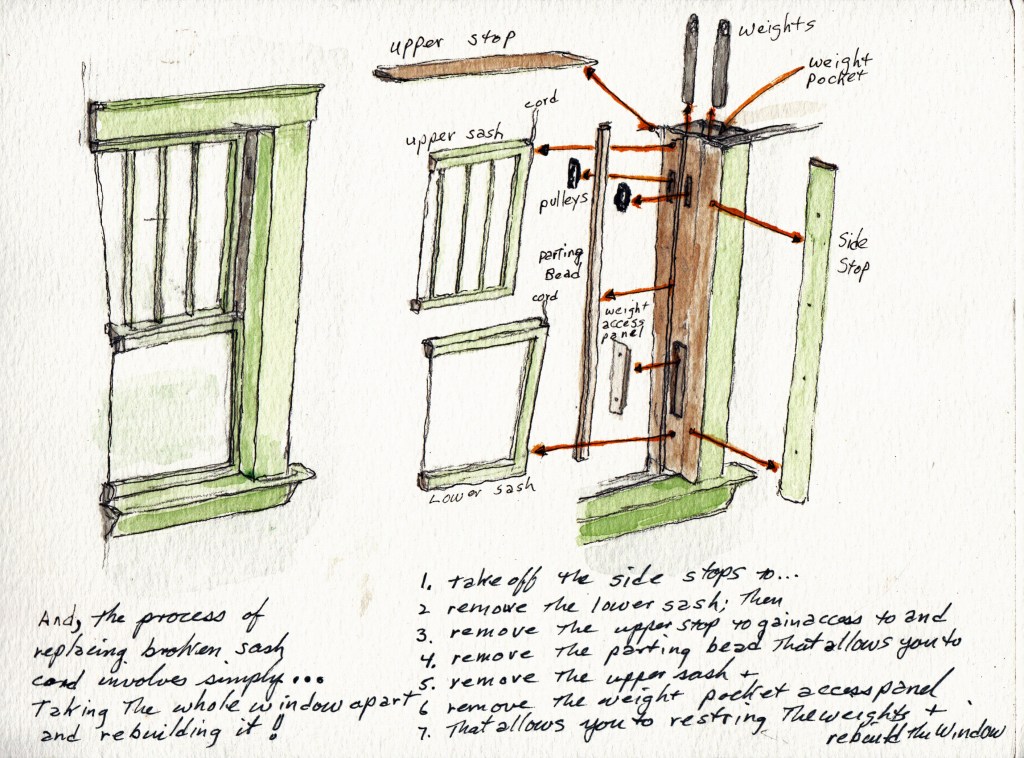 upper stop
weights
weight
pocket
cord
upper sash
pulleys
parting
Bead
cord
weight
access
panel
Side
Stop
Lower sash
1. take off the side stops to...
2 remove the lower sash; Then
3. remove the upper stop to gain access to and
4. remove the parting bead that allows you to
5. remove the upper sash +
6 remove the weight pocket access panel
7. That allows you to restring The weights +
rebuild The window
And, the process of
replacing broken sash
cord involves simply...
Taking The whole window apart
and rebuilding it!